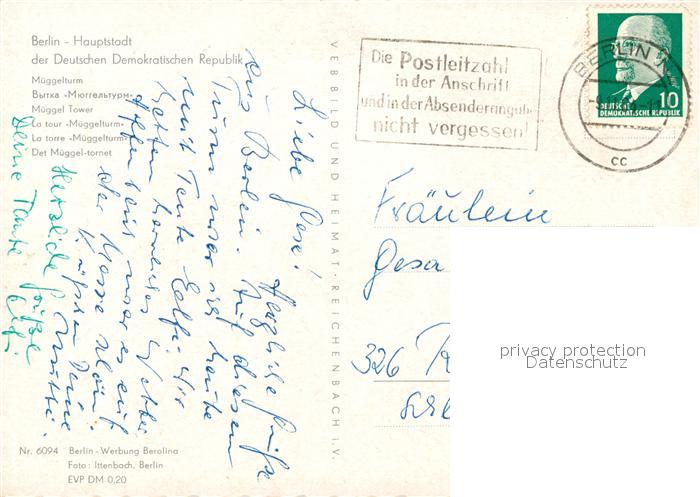 Berlin – Hauptstadt
der Deutschen Demokratischen Republik
Müggelturm
Вытка «Мюггельтурм»
Müggel Tower
La tour «Müggelturm»
La torre «Müggelturm»
Det Müggel-tornet
Liebe Gesa!
Herzliche Grüße
aus Berlin. Auf diesem
Turm war ich heute
mit Tante Elfi. Wir
hatten herrliches Wetter
der Klasse
Deine
Mutti.
Herzliche Grüße
Deine Tante Elfi
Nr. 6094 Berlin-Werbung Berolina
Foto: Ittenbach, Berlin
EVP DM 0,20
VEB BILD UND HEIMAT · REICHENBACH i. V.
Die Postleitzahl
in der Anschrift
und in der Absenderangabe
nicht vergessen!
BERLIN
cc
10
DEUTSCHE
DEMOKRATISCHE REPUBLIK
Fräulein
Gesa
326
privacy protection
Datenschutz